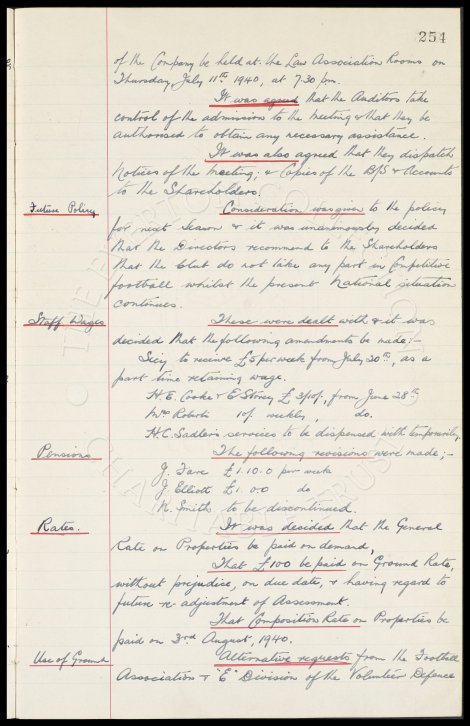 254
of the Company be held at the Law Association Rooms on
Thursday, July 11th 1940, at 7.30 p.m.
It was agreed that the Auditors take
control of the admissions to the meeting & that they be
authorised to obtain any necessary assistance.
It was also agreed that they dispatch
Notices of the Meeting; & Copies of the B/S & Accounts
to the Shareholders.
Future Policy Consideration was given to the policy
for next season & it was unanimously decided
that the Directors recommend to the Shareholders
that the Club do not take any part in Competitive
football whilst the present National situation
continues.
Staff Wages These were dealt with & it was
decided that the following amendments be made;-
to receive £5 per week from July 20th, as a
part time retaining wage.
H.E. Cooke & E Storey £3/10/-, from June 28th
Mrs Roberts 10/- weekly, do.
H.C. Sadler's services to be dispensed with temporarily.
Pensions The following revisions were made;-
J. £1.10.0 per week
J. Elliott £1.0.0 do
N. Smith to be discontinued.
Rates. It was decided that the General
Rate on Properties be paid on demand,
That £100 be paid on Ground Rate,
without prejudice, on due date, & having regard to
future re-adjustment of Assessment.
That Composition Rate on Properties be
paid on 3rd August, 1940.
Use of Ground Alternative requests from the Football
Association & "E" Division of the Volunteer Defence